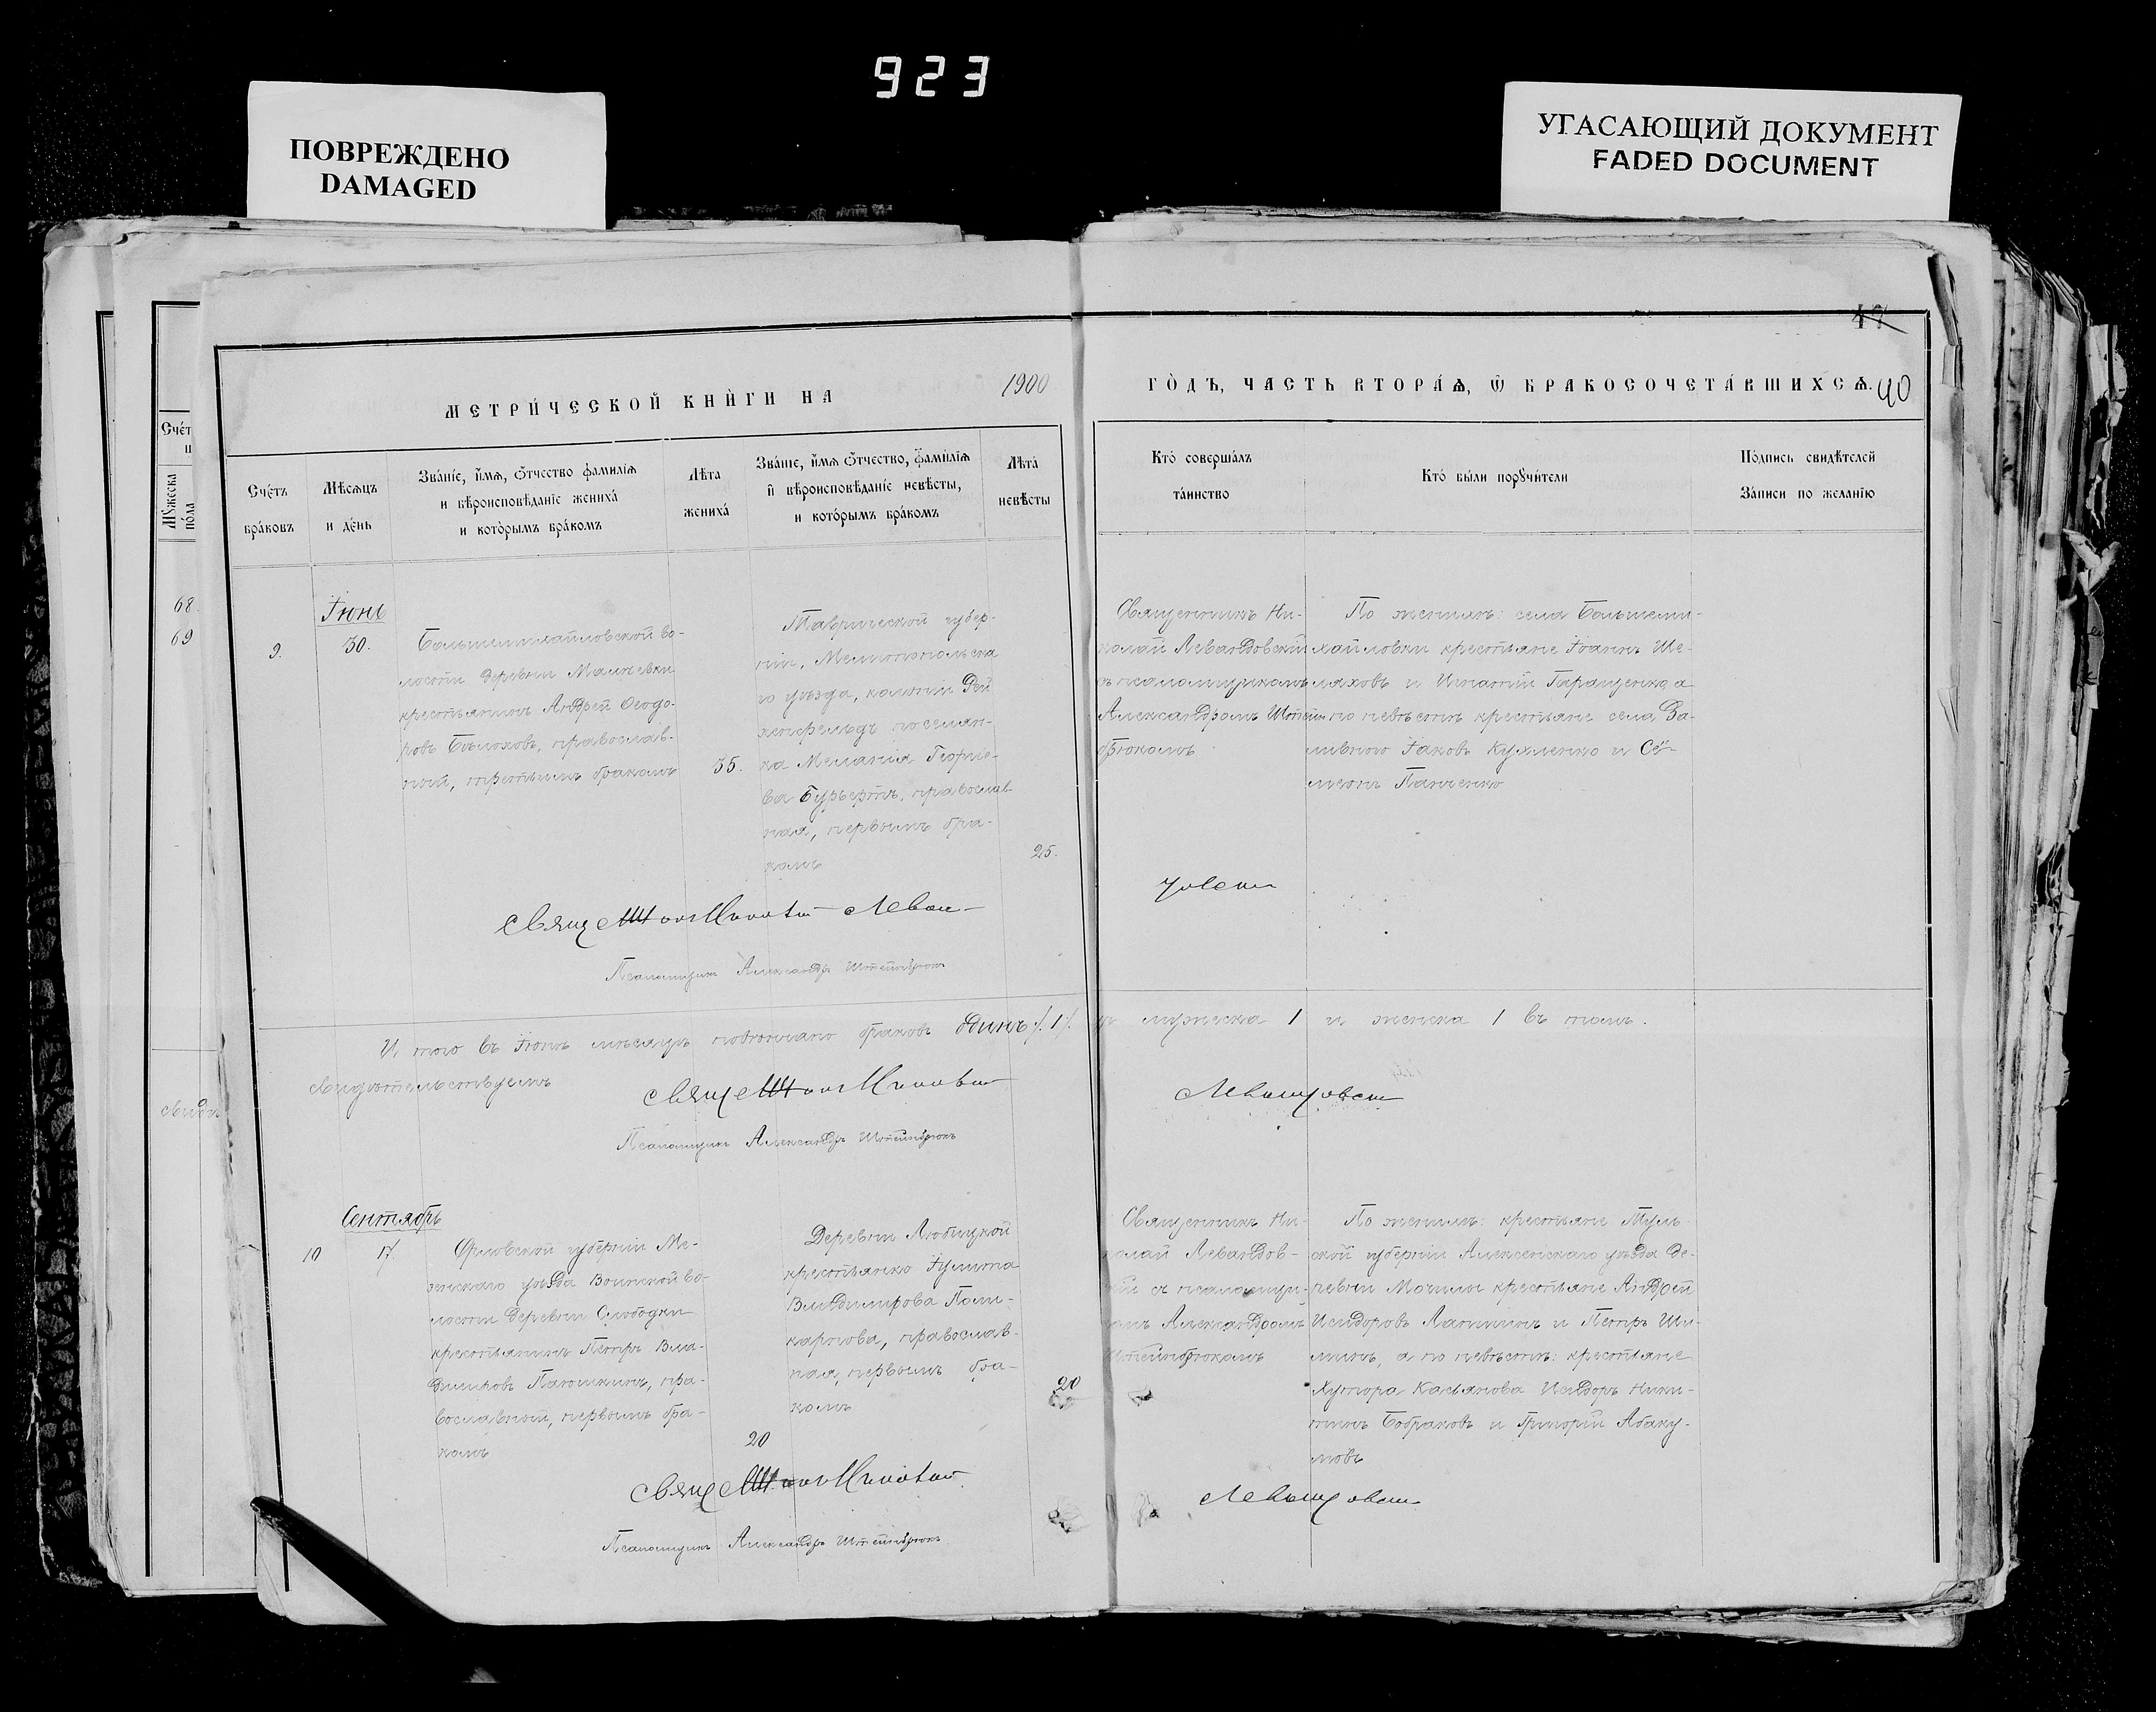 923
ПОВРЕЖДЕНО
DAMAGED
УГАСАЮЩИЙ ДОКУМЕНТ
FADED DOCUMENT
47
МЕТРИ́ЧЕСКОЙ КНИ́ГИ НА 1900
ГО́ДЪ, ЧАСТЬ ВТОРА́Ѧ, Ѿ БРАКОСОЧЕТА́ВШИХСѦ. 40
Сче́т
Мꙋжеска
по́ла
68.
69
Сче́тъ
бра́ковъ
Мѣ́сѧцъ
и де́нь
Зва́нїе, и́мѧ, ѻ́тчество фами́лїѧ
и вѣроисповѣ́данїе жениха́
и кото́рымъ бра́комъ
Лѣ́та
жениха́
Зва́нїе, и́мѧ ѻ́тчество, фами́лїѧ
и вѣроисповѣ́данїе невѣ́сты,
и кото́рымъ бра́комъ
Лѣ́та
невѣ́сты
Кто́ соверша́лъ
та́инство
Кто́ бы́ли порꙋчи́тели
По́дпись свидѣ́телей
За́писи по жела́нїю
Іюнь
9.
30.
Большемихайловской во-
лости деревни Маличевки
крестьянинъ Андрей Ѳеодо-
ровъ Бѣлоховъ, православ-
ный, третьимъ бракомъ
35.
Таврической губер-
ніи, Мелитопольска
го уѣзда, колоніи Рей
хенфельдъ поселян-
ка Меланія Георгіе-
ва Бурьертъ, православ-
ная, первымъ бра-
комъ
25.
Священникъ Ни-
колай Левандовскій
съ псаломщикомъ
Александромъ Штейн
брюкомъ
По женихѣ: села Большеми-
хайловки крестьяне Іоаннъ Ше-
ляховъ и Игнатій Геращенко, а
по невѣстѣ крестьяне села За-
ливного Іаковъ Кухленко и Сѵ-
меонъ Панченко
Псаломщикъ Александръ Штейнбрюкъ
И того въ Іюнѣ мѣсяцѣ повѣнчано браковъ одинъ /. 1 /.
мужеска 1 и женска 1 въ томъ.
свидѣтельствуемъ
Псаломщикъ Александръ Штейнбрюкъ
Сентябрь
10
17.
Орловской губерніи Ме-
женскаго уѣзда Воинской во-
лости деревни Слободки
крестьянинъ Петръ Вла-
димировъ Панюшкинъ, пра-
вославный, первымъ бра-
комъ
20
Деревни Любицкой
крестьянка Іулита
Владимирова Поли-
карпова, православ-
ная, первымъ бра-
комъ
20
Священникъ Ни-
колай Левандов-
скій съ псаломщи-
комъ Александромъ
Штейнбрюкомъ
По женихѣ: крестьяне Туль-
ской губерніи Алексенскаго уѣзда де-
ревни Мочилы крестьяне Андрей
Исидоровъ Лапшинъ и Петръ Ши-
линъ, а по невѣстѣ: крестьяне
Хутора Касьянова Исидоръ Ники-
тинъ Бобраковъ и Григорій Абаку-
мовъ
Псаломщикъ Александръ Штейнбрюкъ